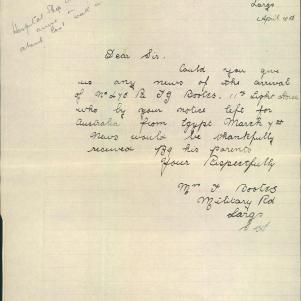 Largs
April 10th
Hospital Ship
arrive in
about last week in
Dear Sir.
Could you give
us any news of the arrival
of No 270 R. T G Bootes. 11th Light Horse
who by your notice left for
Australia from Egypt March 7th
News would be thankfully
received By his parents
Yours Respectfully
Mrs F Bootes
Military Rd
Largs
S A